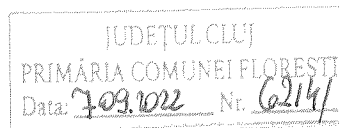 JUDEȚUL CLUJ
PRIMĂRIA COMUNEI FLOREȘTI
Data: 7.09.2022 Nr. 6214/